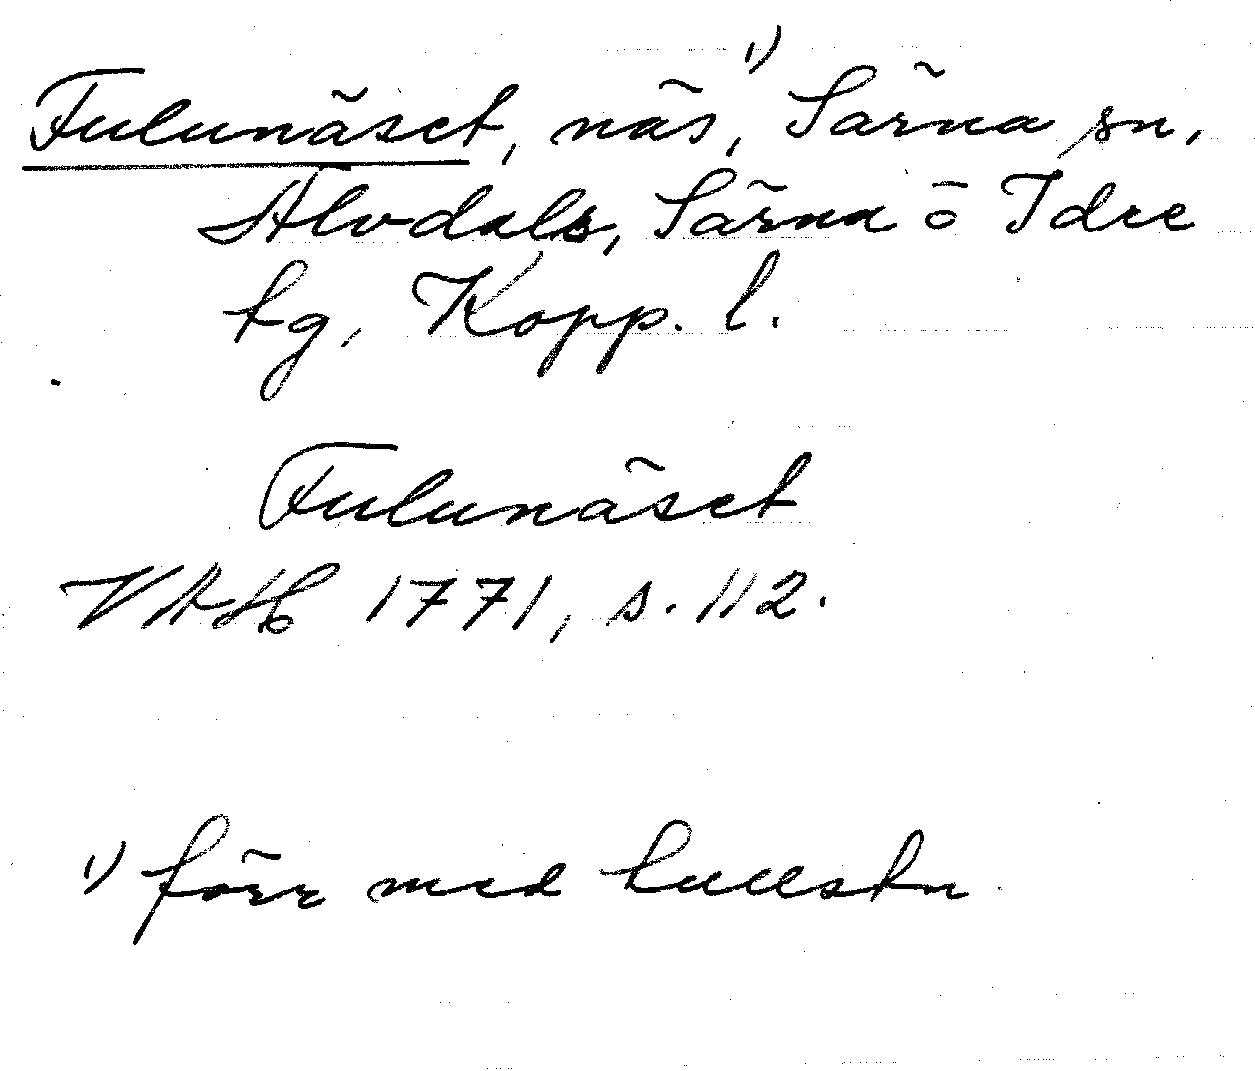 Fulunäset, näs,¹⁾ Särna sn,
Älvdals, Särna o Idre
tg, Kopp. l.
Fulunäset
VAH 1771, s. 112.
1) förr med